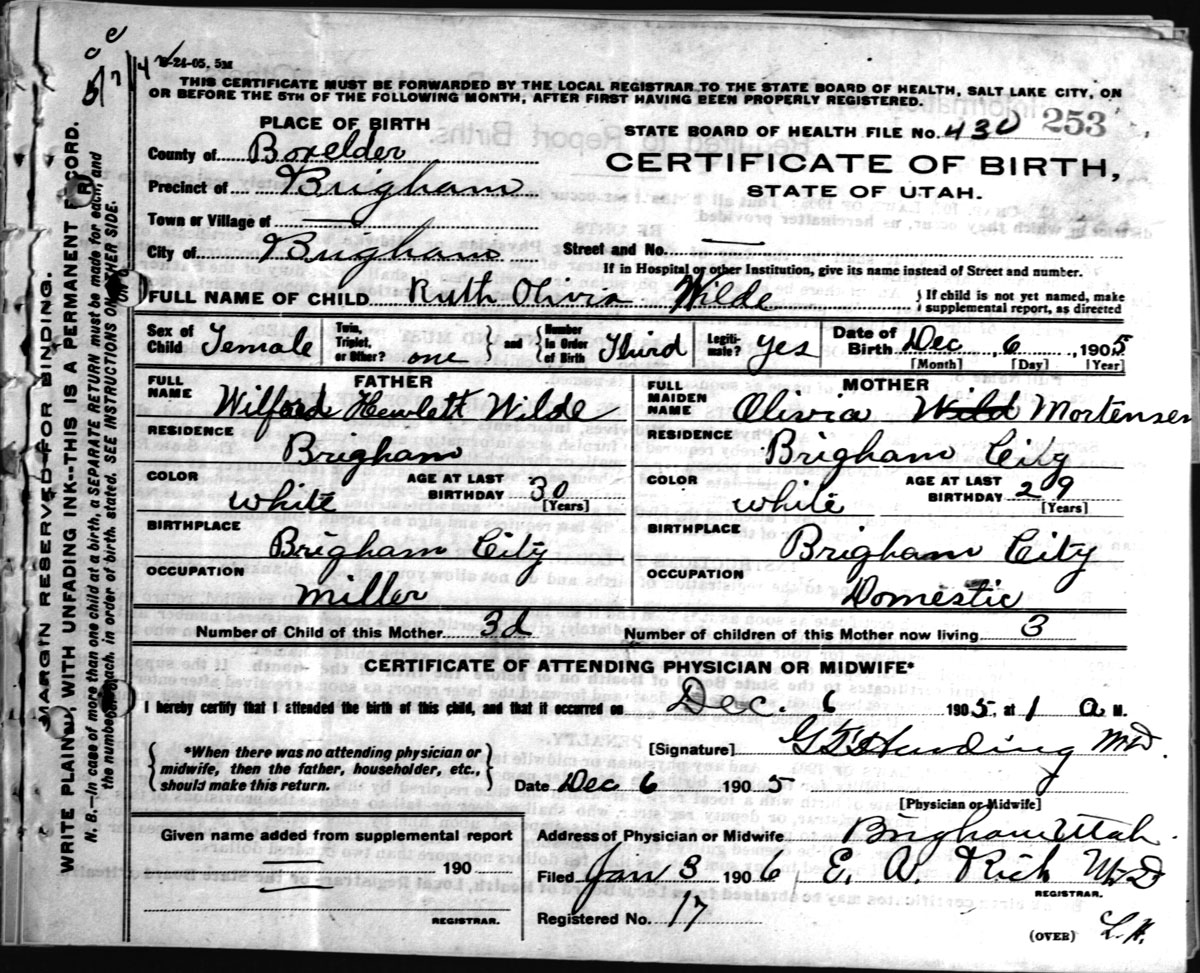 8-24-05. 5M
THIS CERTIFICATE MUST BE FORWARDED BY THE LOCAL REGISTRAR TO THE STATE BOARD OF HEALTH, SALT LAKE CITY, ON
OR BEFORE THE 5TH OF THE FOLLOWING MONTH, AFTER FIRST HAVING BEEN PROPERLY REGISTERED.
PLACE OF BIRTH
STATE BOARD OF HEALTH FILE No. 430 253
County of Boxelder
CERTIFICATE OF BIRTH,
Precinct of Brigham
STATE OF UTAH.
Town or Village of —
City of Brigham Street and No. —
If in Hospital or other Institution, give its name instead of Street and number.
FULL NAME OF CHILD Ruth Olivia Wilde } If child is not yet named, make supplemental report, as directed
Sex of Child Female Twin, Triplet, or Other? one } and { Number In Order of Birth Third Legitimate? yes Date of Birth Dec 6, 1905
[Month] [Day] [Year]
FATHER MOTHER
FULL NAME Wilford Hewlett Wilde FULL MAIDEN NAME Olivia Wild Mortensen
RESIDENCE Brigham RESIDENCE Brigham City
COLOR white AGE AT LAST BIRTHDAY 30 [Years] COLOR white AGE AT LAST BIRTHDAY 29 [Years]
BIRTHPLACE Brigham City BIRTHPLACE Brigham City
OCCUPATION Miller OCCUPATION Domestic
Number of Child of this Mother 3d Number of children of this Mother now living 3
CERTIFICATE OF ATTENDING PHYSICIAN OR MIDWIFE*
I hereby certify that I attended the birth of this child, and that it occurred on Dec. 6 1905, at 1 a M.
{ *When there was no attending physician or midwife, then the father, householder, etc., should make this return. }
[Signature] Harding MD.
Date Dec 6 1905
[Physician or Midwife]
Given name added from supplemental report
190
REGISTRAR.
Address of Physician or Midwife Brigham Utah.
Filed Jan 3 1906 E. A. Rich M.D
REGISTRAR.
Registered No. 17
(OVER) L.H.
MARGIN RESERVED FOR BINDING.
WRITE PLAINLY, WITH UNFADING INK--THIS IS A PERMANENT RECORD.
N. B.—In case of more than one child at a birth, a SEPARATE RETURN must be made for each, and
the number of each, in order of birth, stated. SEE INSTRUCTIONS ON OTHER SIDE.